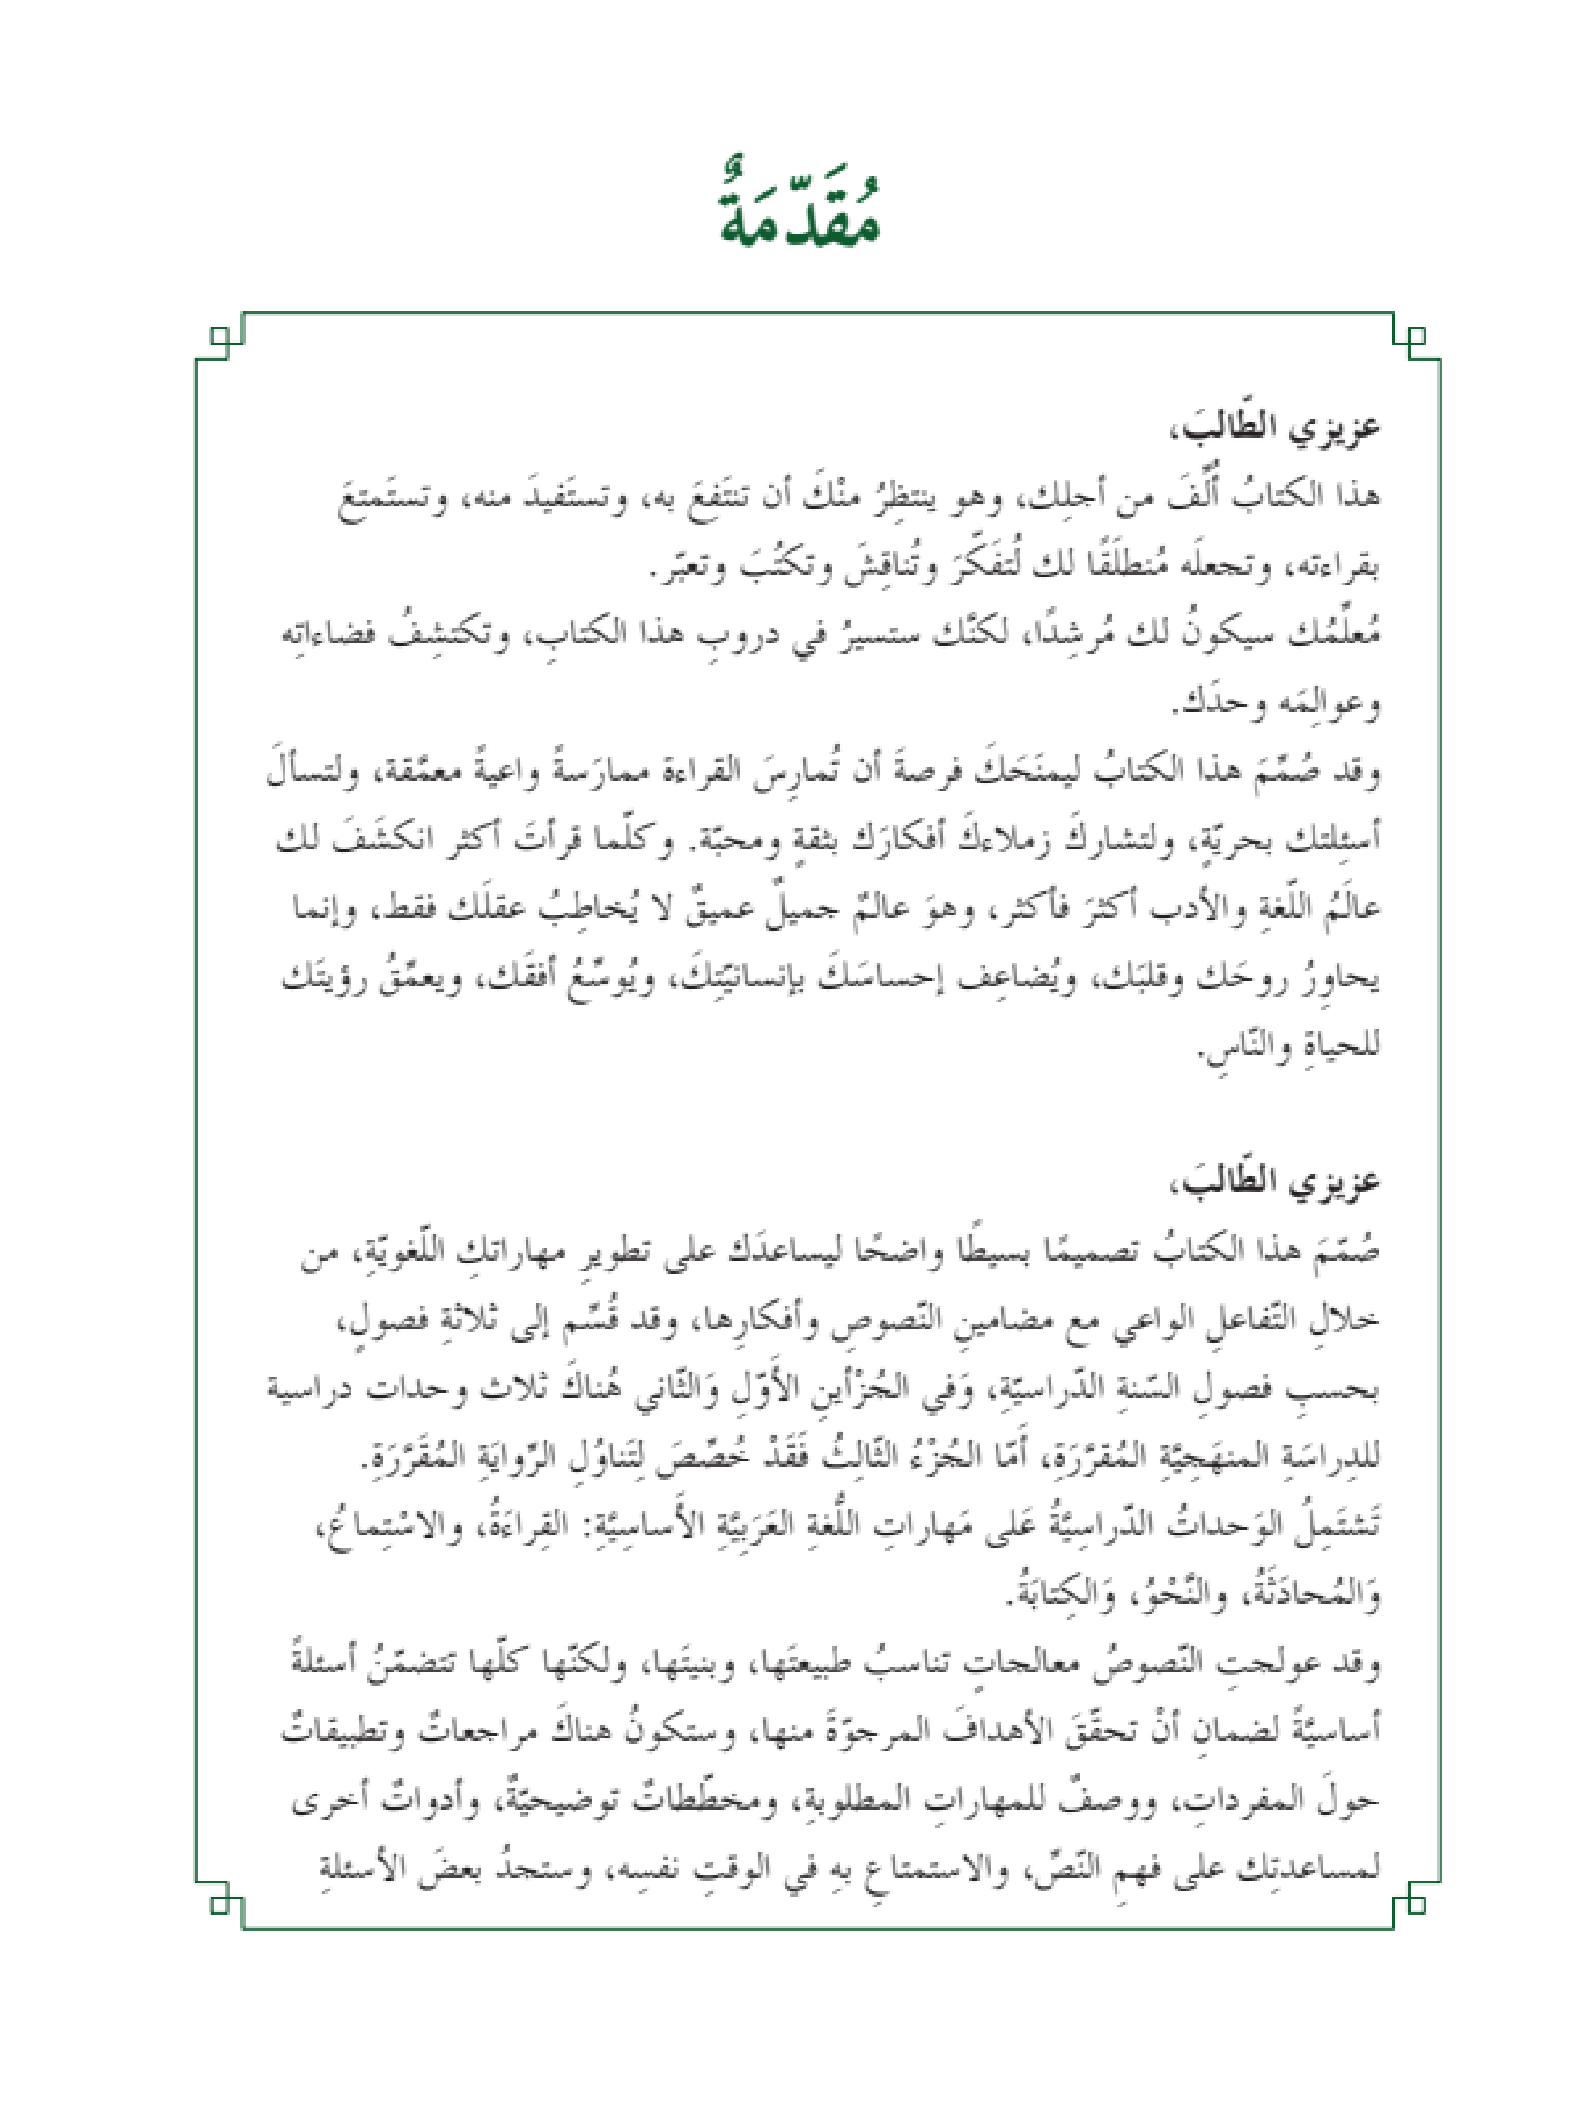 مُقَدّمَةٌ
عزيزي الطّالبَ،
هذا الكتابُ أُلّفَ من أجلِك، وهو ينتظِرُ منْكَ أن تنتَفِعَ به، وتستَفيدَ منه، وتستَمتِعَ
بقراءته، وتجعلَه مُنطلَقًا لك لُتفَكّرَ وتُناقِشَ وتكتُبَ وتعبّر.
مُعلِّمُك سيكونُ لك مُرشِدًا، لكنَّك ستسيرُ في دروبِ هذا الكتابِ، وتكتشِفُ فضاءاتِه
وعوالِمَه وحدَك.
وقد صُمِّمَ هذا الكتابُ ليمنَحَكَ فرصةَ أن تُمارِسَ القراءة ممارَسةً واعيةً معمَّقة، ولتسألَ
أسئِلتك بحريّةٍ، ولتشاركَ زملاءكَ أفكارَك بثقةٍ ومحبّة. وكلّما قرأتَ أكثر انكشَفَ لك
عالَمُ اللّغةِ والأدب أكثرَ فأكثر، وهوَ عالمٌ جميلٌ عميقٌ لا يُخاطِبُ عقلَك فقط، وإنما
يحاوِرُ روحَك وقلبَك، ويُضاعِف إحساسَكَ بإنسانيّتِكَ، ويُوسِّعُ أفقَك، ويعمِّقُ رؤيتَك
للحياةِ والنّاسِ.
عزيزي الطّالبَ،
صُمّمَ هذا الكتابُ تصميمًا بسيطًا واضحًا ليساعدَك على تطويرِ مهاراتكِ اللّغويّةِ، من
خلالِ التّفاعلِ الواعي مع مضامينِ النّصوصِ وأفكارِها، وقد قُسِّم إلى ثلاثةِ فصولٍ،
بحسبِ فصولِ السّنةِ الدّراسيّةِ، وَفي الجُزْأينِ الأَوّلِ وَالثّاني هُناكَ ثلاث وحدات دراسية
للدِراسَةِ المنهَجِيَّةِ المُقرَّرَةِ، أَمّا الجُزْءُ الثّالِثُ فَقَدْ خُصّصَ لِتَناوُلِ الرّوايَةِ المُقَرَّرَةِ.
تَشتَمِلُ الوَحداتُ الدّراسِيَّةُ عَلى مَهاراتِ اللُّغةِ العَرَبِيَّةِ الأَساسِيَّةِ: القِراءَةُ، والاسْتِماعُ،
وَالمُحادَثَةُ، والنَّحْوُ، وَالكِتابَةُ.
وقد عولجتِ النّصوصُ معالجاتٍ تناسبُ طبيعتَها، وبنيتَها، ولكنّها كلّها تتضمّنُ أسئلةً
أساسيَّةً لضمانِ أنْ تحقَّقَ الأهدافَ المرجوّةَ منها، وستكونُ هناكَ مراجعاتٌ وتطبيقاتٌ
حولَ المفرداتِ، ووصفٌ للمهاراتِ المطلوبةِ، ومخطّطاتٌ توضيحيّةٌ، وأدواتٌ أخرى
لمساعدتِك على فهمِ النّصِّ، والاستمتاعِ بهِ في الوقتِ نفسِه، وستجدُ بعضَ الأسئلةِ